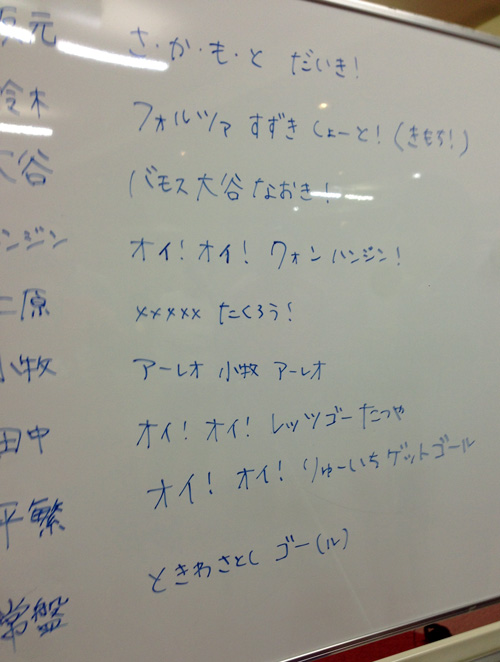 坂元 さ・か・も・と だいき!
鈴木 フォルツァ すずき しょーと!(きもち!)
大谷 バモス大谷 なおき!
ンジン オイ!オイ! クォン ハンジン!
二原 ××××× たくろう!
小牧 アーレオ 小牧 アーレオ
田中 オイ!オイ! レッツゴーたつや
平繁 オイ!オイ! りゅーいちゲットゴール
常盤 ときわさとし ゴー(ル)